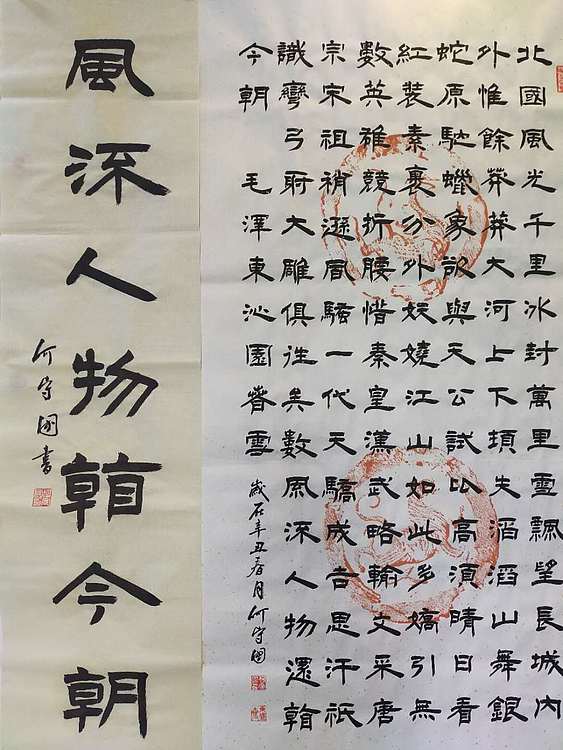 北國風光千里冰封萬里雪飄望長城内
外惟餘莽莽大河上下頃失滔滔山舞銀
蛇原馳蠟象欲與天公試比高須晴日看
紅裝素裹分外妖嬈江山如此多嬌引無
數英雄競折腰惜秦皇漢武略輸文采唐
宗宋祖稍遜風騷一代天驕成吉思汗祇
識彎弓射大雕俱往矣數風流人物還看
今朝 毛澤東沁園春雪
歲在辛丑春月何守國
風流人物看今朝
何守國書